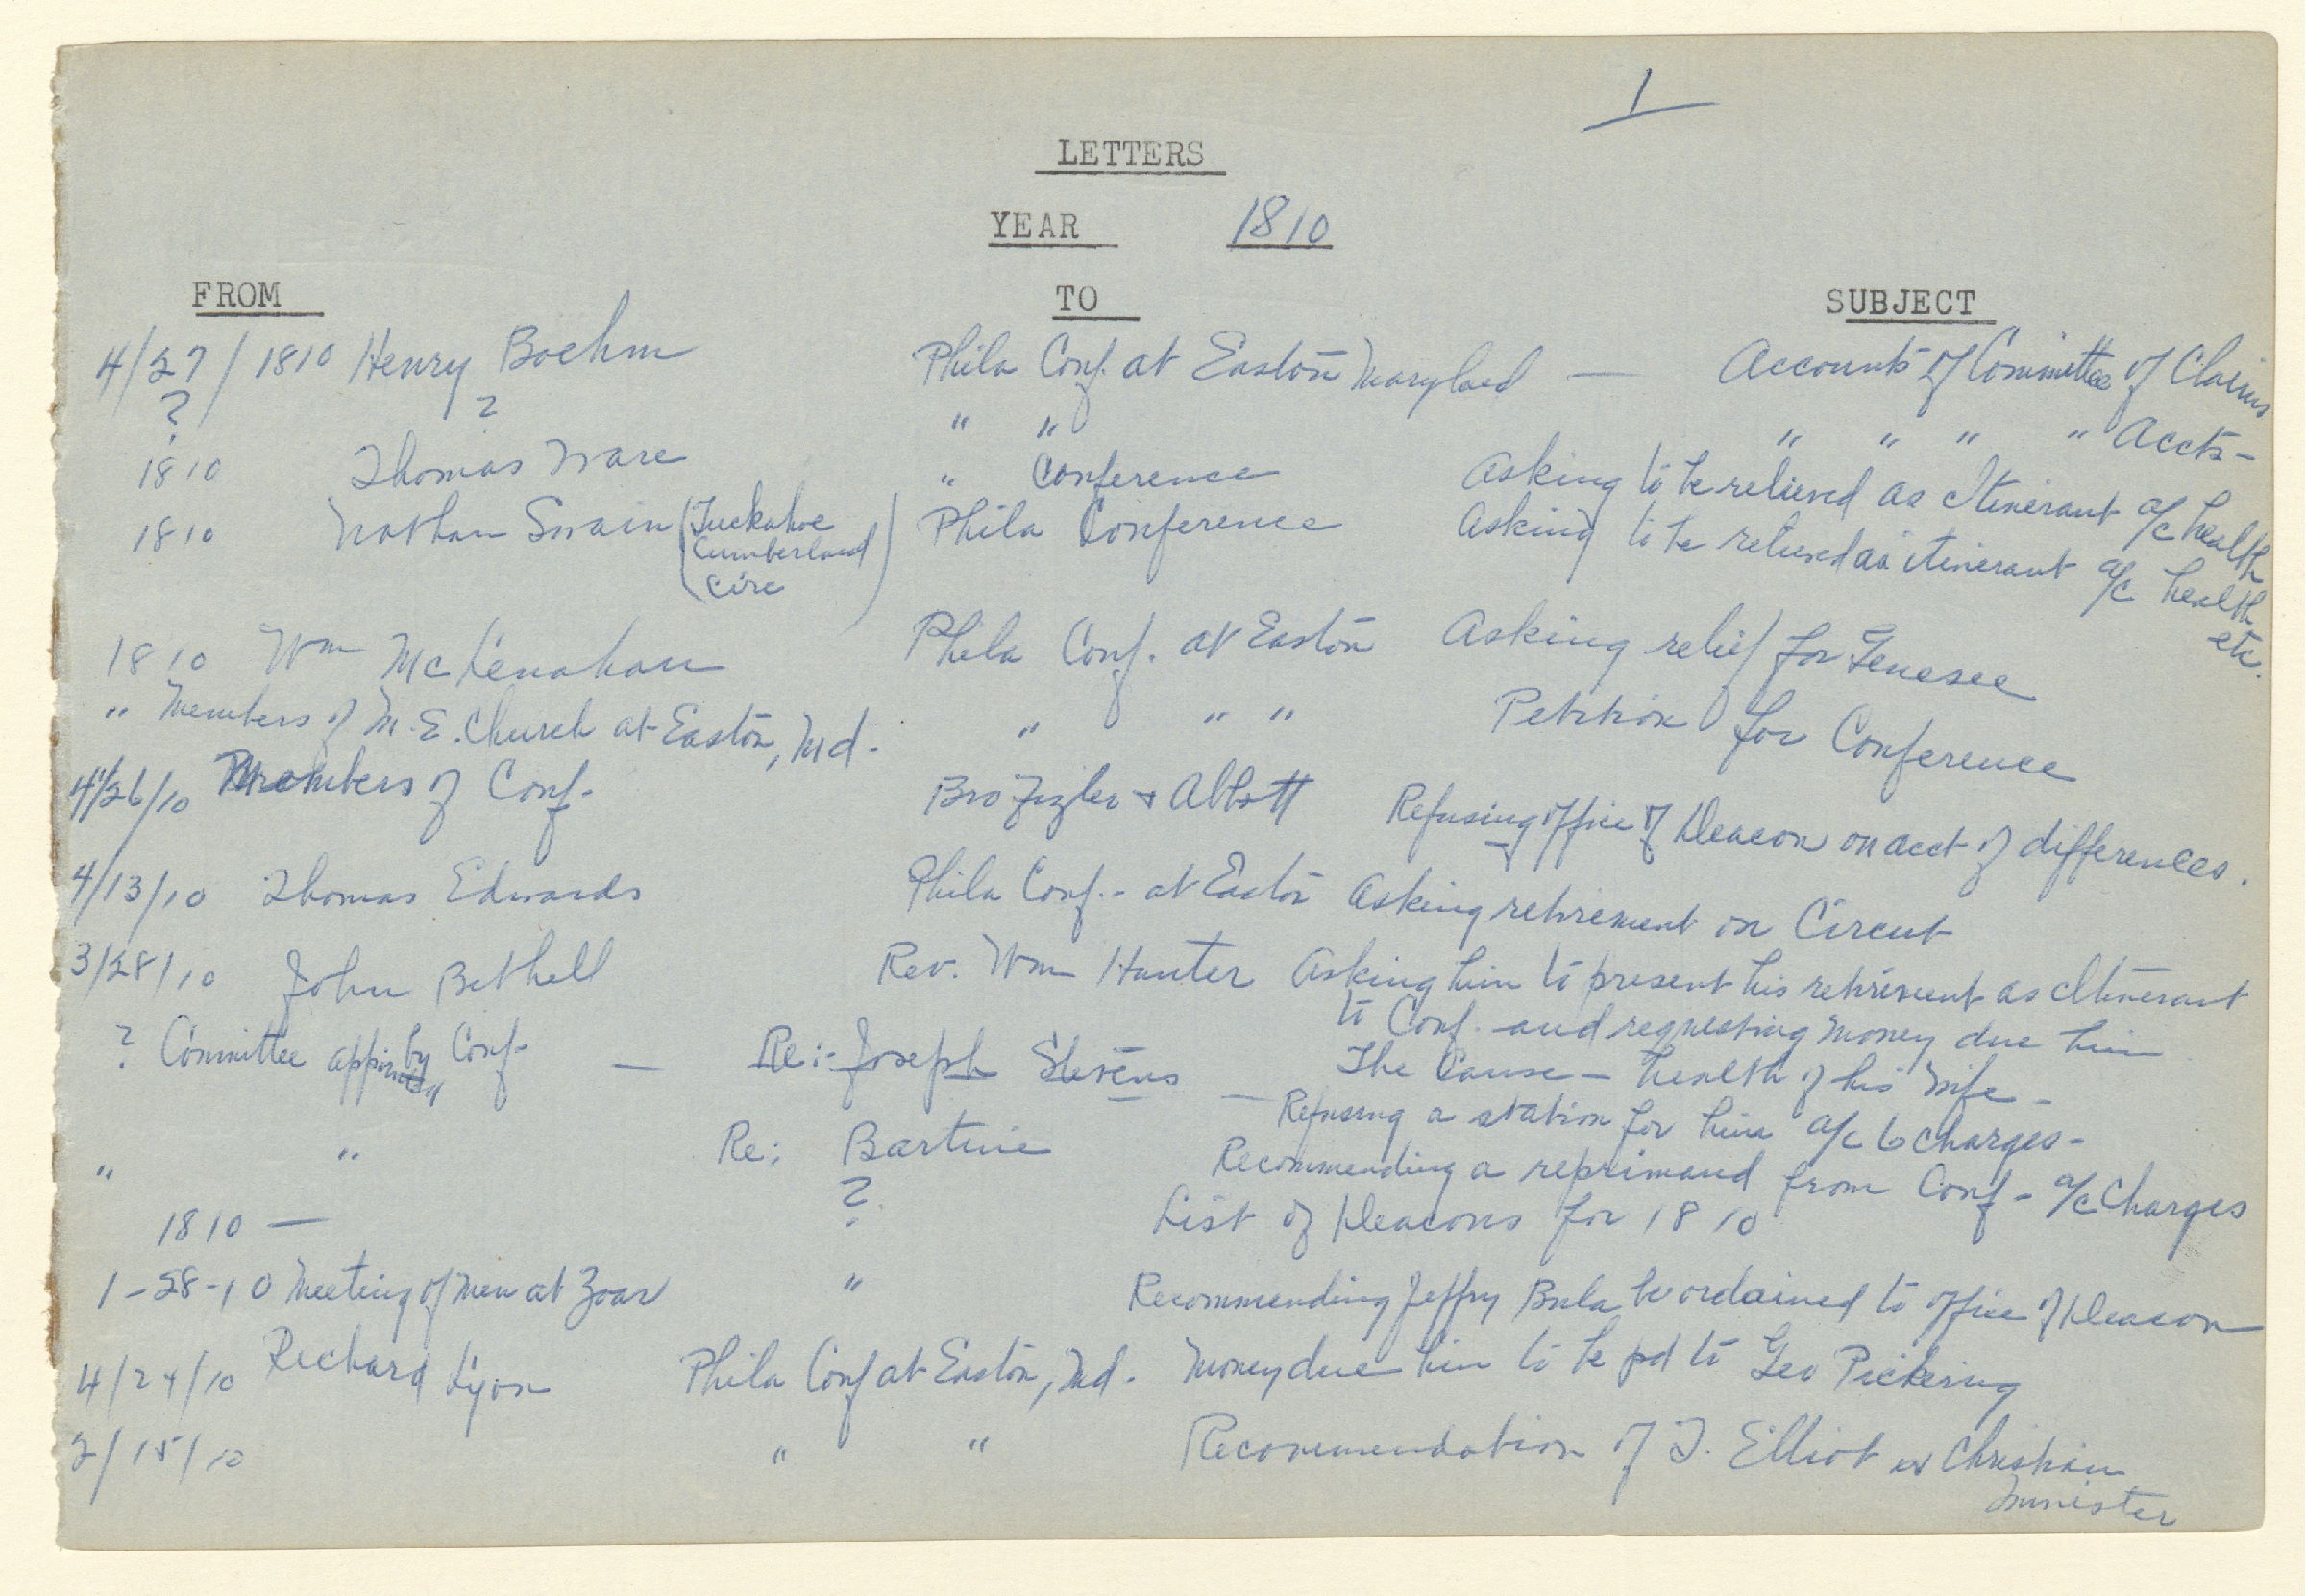 1
LETTERS
YEAR 1810
FROM TO SUBJECT
4/27/1810 Henry Boehm Phila Conf. at Easton Maryland — Accounts of Committee of Claims
? ? " " " " " " Accts-
1810 Thomas Ware " Conference Asking to be relieved as Itinerant a/c health
1810 Nathan Swain (Tuckahoe Cumberland Circ) Phila Conference Asking to be relieved as itinerant a/c health etc.
1810 Wm McLenahan Phila Conf. at Easton Asking relief for Genesee
" Members of M.E. Church at Easton, Md. " " " Petition for Conference
4/26/10 Members of Conf. Bro & Abbott Refusing office of Deacon on acct of differences.
4/13/10 Thomas Edwards Phila Conf.- at Easton Asking retirement on Circut
3/28/10 John Bethell Rev. Wm Hunter Asking him to present his retirement as Itinerant
to Conf. and requesting money due him
The Cause — health of his wife -
? Committee appointed by Conf- — Re:- Joseph Stevens — Refusing a station for him a/c 6 charges-
" " Re: Bartine Recommending a reprimand from Conf - a/c Charges
1810 — ? List of Deacons for 1810
1-28-10 Meeting of Men at Zoar " Recommending Jeffry be ordained to office of Deacon
4/24/10 Richard Lyon Phila Conf at Easton, Md. Money due him to be pd to Geo Pickering
2/15/10 " " Recommendation of T. Elliot as Christian
Minister